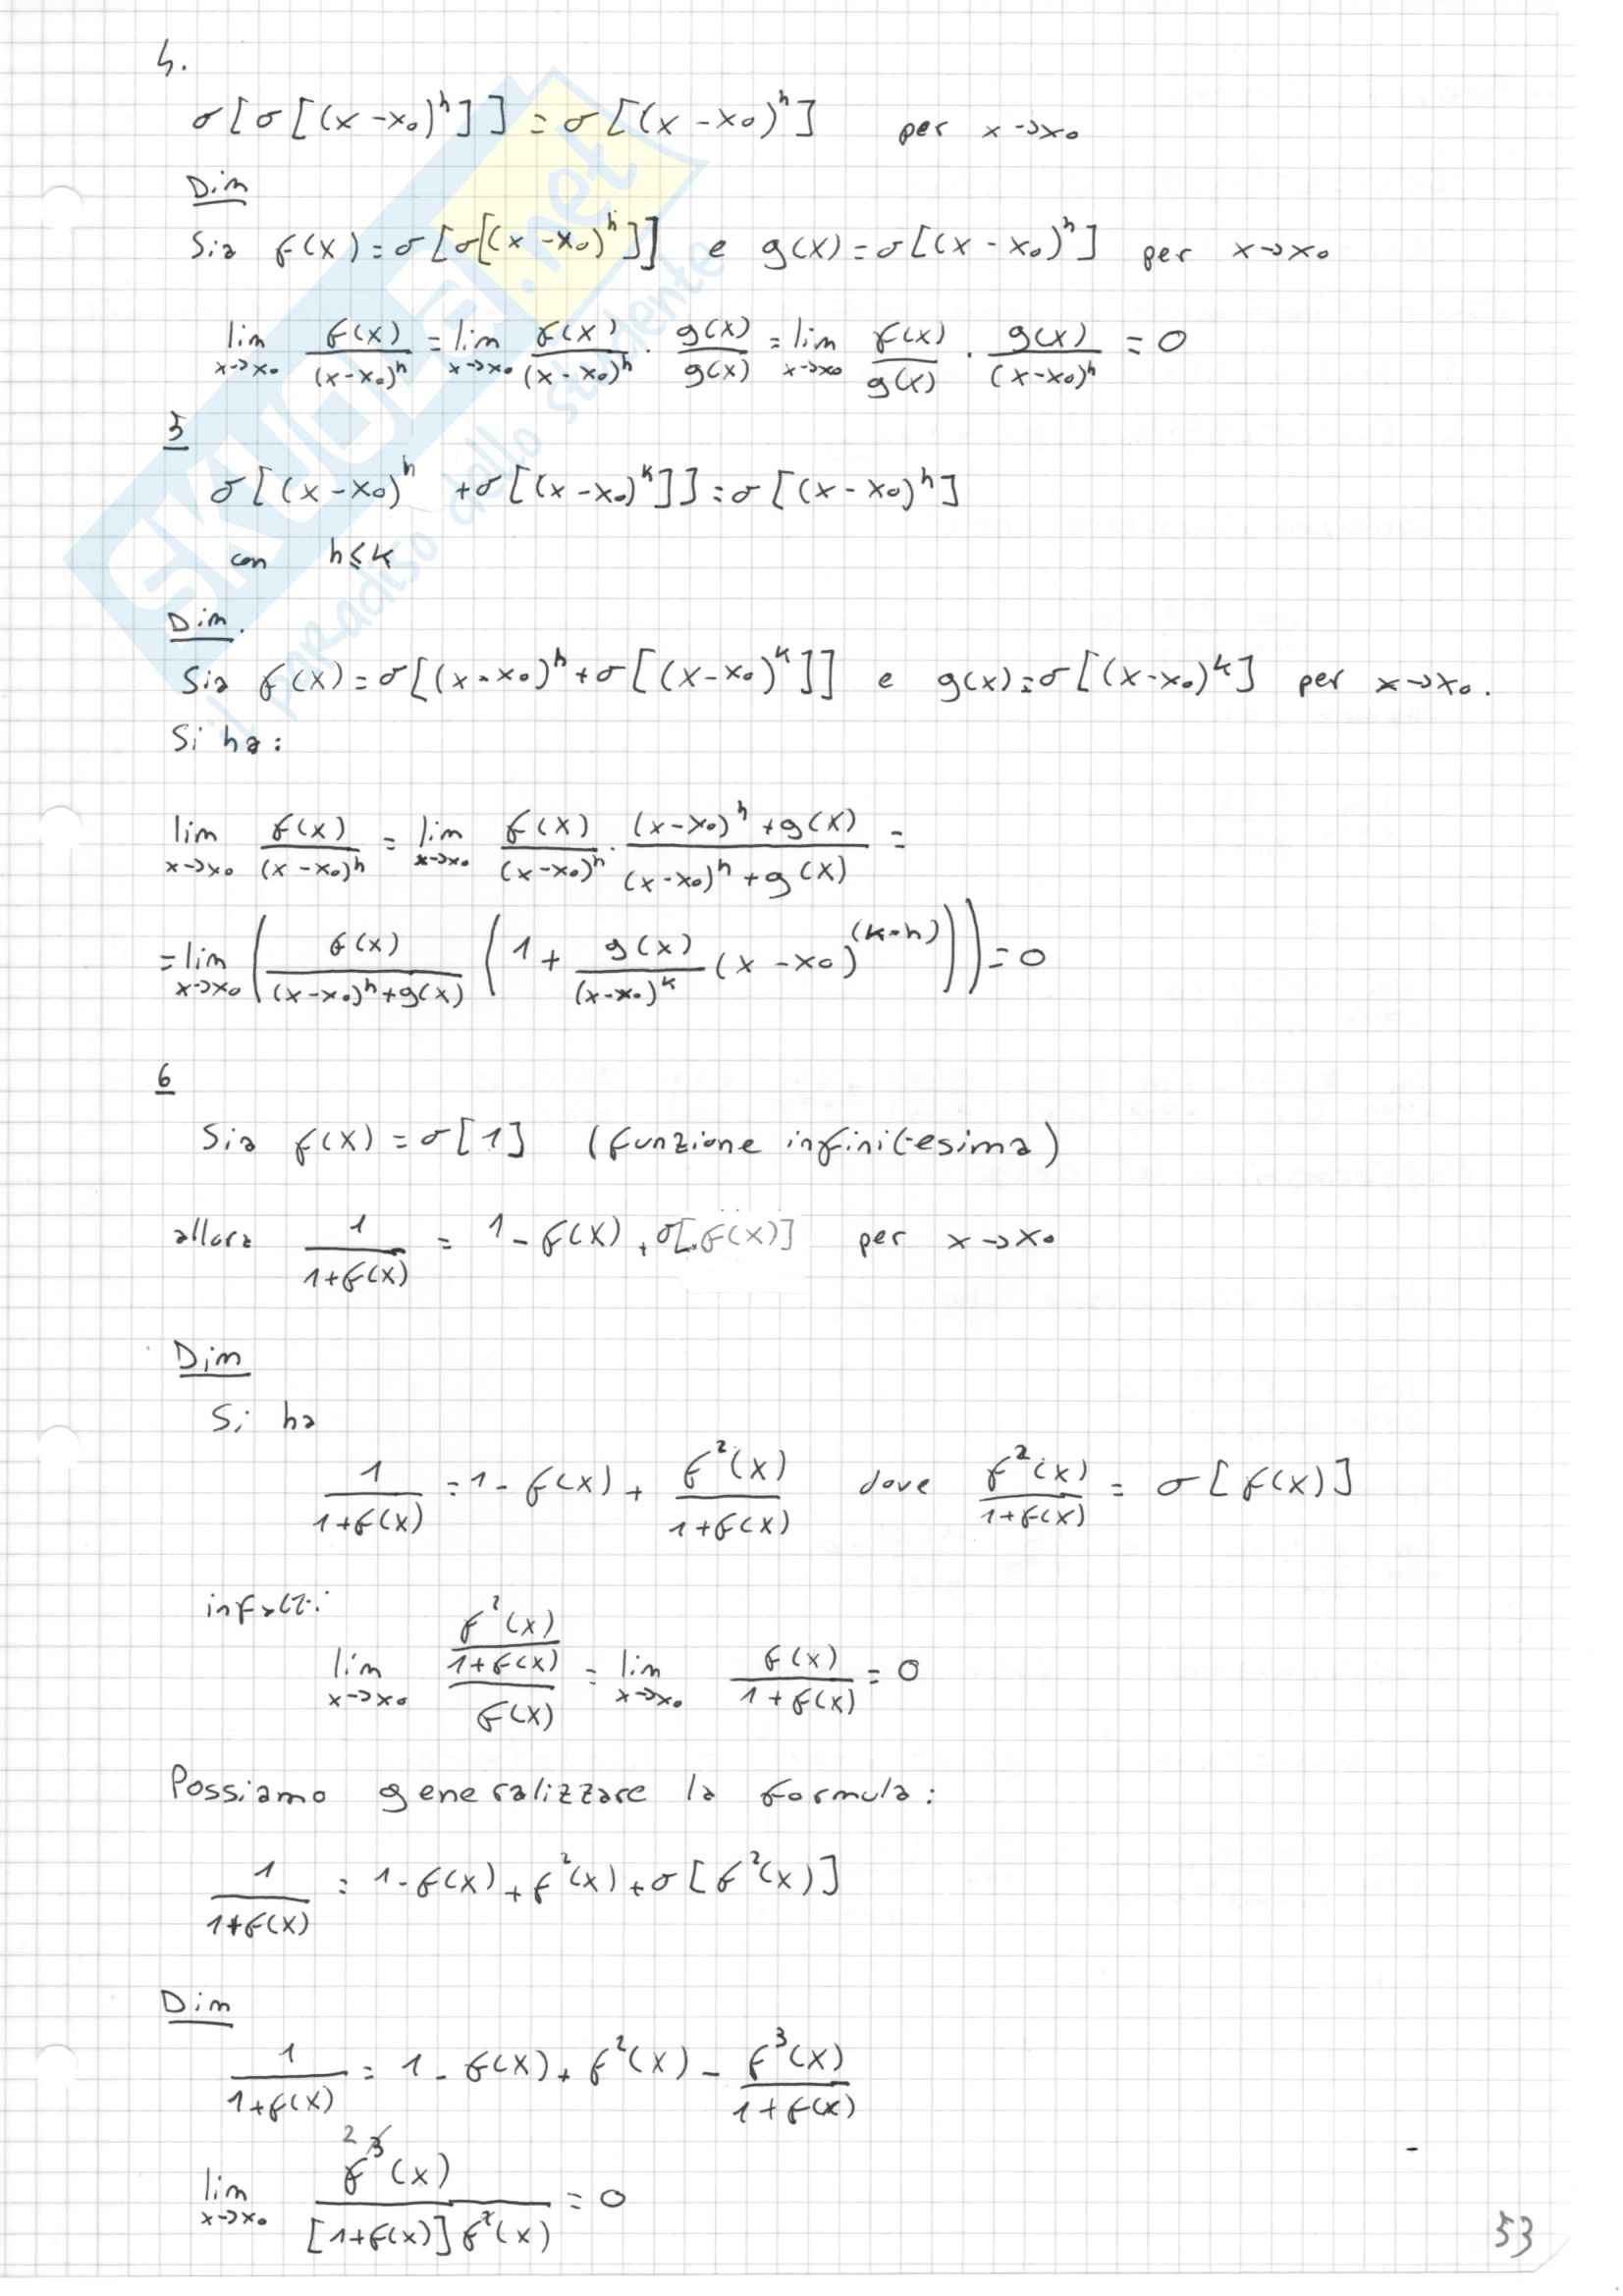 4.
σ[σ[(x-x₀)ʰ]] = σ[(x-x₀)ʰ] per x→x₀
Dim
Sia f(x)=σ[σ[(x-x₀)ʰ]] e g(x)=σ[(x-x₀)ʰ] per x→x₀
lim x→x₀ f(x)/(x-x₀)ʰ = lim x→x₀ f(x)/(x-x₀)ʰ · g(x)/g(x) = lim x→x₀ f(x)/g(x) · g(x)/(x-x₀)ʰ = 0
5
σ[(x-x₀)ʰ +σ[(x-x₀)ᵏ]]=σ[(x-x₀)ʰ]
con h≤k
Dim.
Sia f(x)=σ[(x-x₀)ʰ+σ[(x-x₀)ᵏ]] e g(x)=σ[(x-x₀)ᵏ] per x→x₀.
Si ha:
lim x→x₀ f(x)/(x-x₀)ʰ = lim x→x₀ f(x)/(x-x₀)ʰ · ((x-x₀)ʰ+g(x))/((x-x₀)ʰ+g(x)) =
=lim x→x₀ (f(x)/((x-x₀)ʰ+g(x)) (1+ g(x)/(x-x₀)ᵏ (x-x₀)^(k-h)))=0
6
Sia f(x)=σ[1] (funzione infinitesima)
allora 1/(1+f(x)) = 1-f(x)+σ[f(x)] per x→x₀
Dim
Si ha
1/(1+f(x)) =1-f(x)+ f²(x)/(1+f(x)) dove f²(x)/(1+f(x)) = σ[f(x)]
infatti:
lim x→x₀ (f²(x)/(1+f(x)))/f(x) = lim x→x₀ f(x)/(1+f(x)) = 0
Possiamo generalizzare la formula:
1/(1+f(x)) = 1-f(x)+f²(x)+σ[f²(x)]
Dim
1/(1+f(x)) = 1-f(x)+f²(x)- f³(x)/(1+f(x))
2
lim x→x₀ f³(x)/([1+f(x)]f²(x)) =0
53
SKUOLA.net
il paradiso dello studente